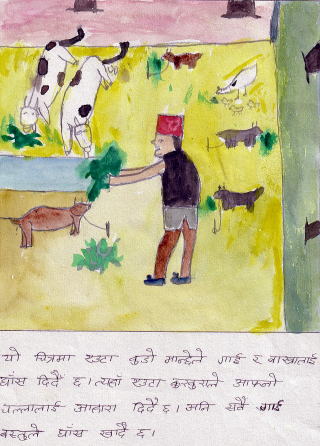 यो चित्रमा एउटा बुडो मान्छेले गाई र बाख्रालाई
घाँस दिदै छ। त्यहाँ एउटा कुखुराले आफ्नो
चल्लालाई आहारा दिदै छ। अनि सबै गाई
वस्तुले घाँस खाँदै छ।